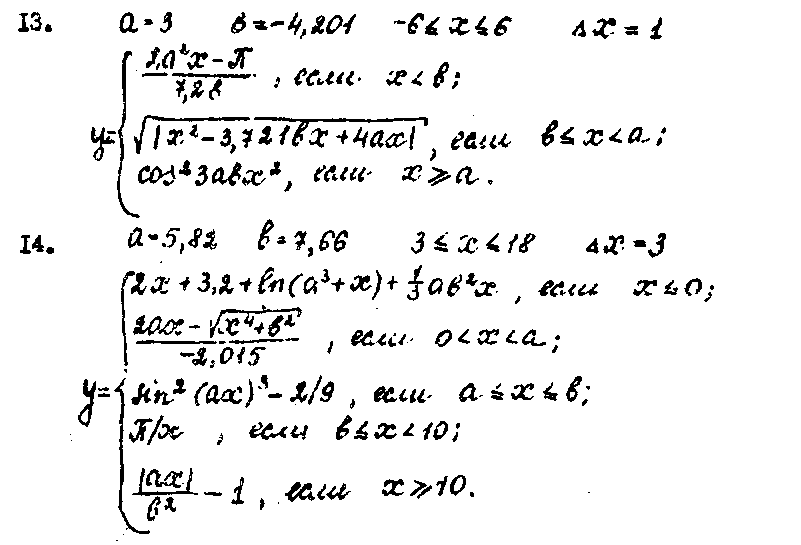 I3. a=3 в=-4,201 -6≤x≤6 Δx=1
y= { (2a²x-π)/(7,2в), если x<в;
√|x²-3,721вx+4ax|, если в≤x<a;
cos²3aвx², если x≥a.
I4. a=5,82 в=7,66 3≤x≤18 Δx=3
y= { 2x+3,2+ln(a³+x)+⅓aв²x, если x≤0;
(2ax-√(x⁴+в²))/(-2,015), если 0<x<a;
sin²(ax)³-2/9, если a≤x≤в;
π/x, если в≤x<10;
|ax|/в² - 1, если x≥10.